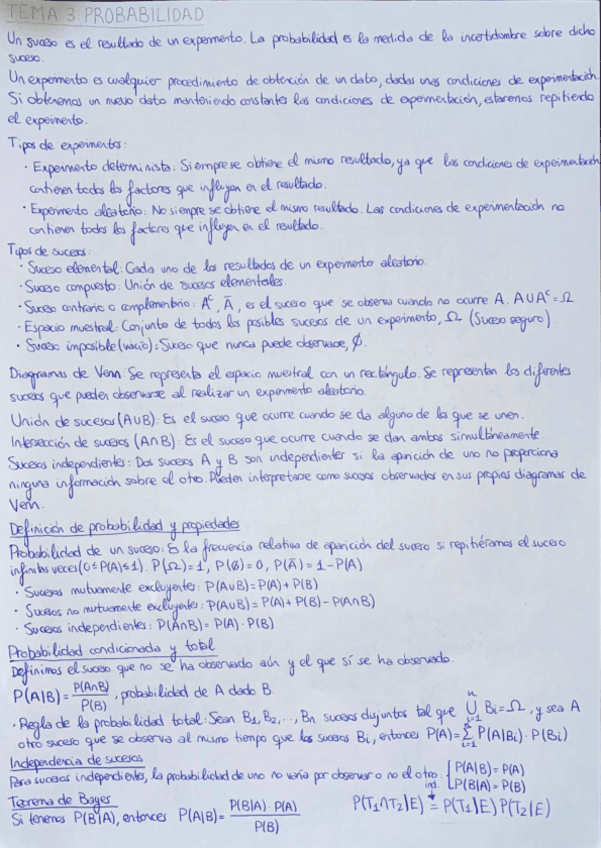 TEMA 3: PROBABILIDAD
Un suceso es el resultado de un experimento. La probabilidad es la medida de la incertidumbre sobre dicho
suceso.
Un experimento es cualquier procedimiento de obtención de un dato, dadas unas condiciones de experimentación.
Si obtenemos un nuevo dato manteniendo constantes las condiciones de experimentación, estaremos repitiendo
el experimento.
Tipos de experimentos:
· Experimento determinista: Siempre se obtiene el mismo resultado, ya que las condiciones de experimentación
contienen todos los factores que influyen en el resultado.
· Experimento aleatorio: No siempre se obtiene el mismo resultado. Las condiciones de experimentación no
contienen todos los factores que influyen en el resultado.
Tipos de sucesos:
· Suceso elemental: Cada uno de los resultados de un experimento aleatorio.
· Suceso compuesto: Unión de sucesos elementales.
· Suceso contrario o complementario: Aᶜ, Ā, es el suceso que se observa cuando no ocurre A. A∪Aᶜ=Ω
· Espacio muestral: Conjunto de todos los posibles sucesos de un experimento, Ω (Suceso seguro)
· Suceso imposible (vacío): Suceso que nunca puede observarse, ∅.
Diagramas de Venn: Se representa el espacio muestral con un rectángulo. Se representan los diferentes
sucesos que pueden observarse al realizar un experimento aleatorio.
Unión de sucesos (A∪B): Es el suceso que ocurre cuando se da alguno de los que se unen.
Intersección de sucesos (A∩B): Es el suceso que ocurre cuando se dan ambos simultáneamente
Sucesos independientes: Dos sucesos A y B son independientes si la aparición de uno no proporciona
ninguna información sobre el otro. Pueden interpretarse como sucesos observados en sus propios diagramas de
Venn.
Definición de probabilidad y propiedades
Probabilidad de un suceso: Es la frecuencia relativa de aparición del suceso si repitiéramos el suceso
infinitas veces (0≤P(A)≤1). P(Ω)=1, P(∅)=0, P(Ā)=1-P(A)
· Sucesos mutuamente excluyentes: P(A∪B)=P(A)+P(B)
· Sucesos no mutuamente excluyentes: P(A∪B)=P(A)+P(B)-P(A∩B)
· Sucesos independientes: P(A∩B)=P(A)·P(B)
Probabilidad condicionada y total
Definimos el suceso que no se ha observado aún y el que sí se ha observado.
P(A|B)=P(A∩B)/P(B), probabilidad de A dado B.
· Regla de la probabilidad total: Sean B₁, B₂, ..., Bn sucesos disjuntos tal que ⋃ⁿᵢ₌₁ Bi=Ω, y sea A
otro suceso que se observa al mismo tiempo que los sucesos Bi, entonces P(A)=Σⁿᵢ₌₁ P(A|Bi)·P(Bi)
Independencia de sucesos
Para sucesos independientes, la probabilidad de uno no varía por observar o no el otro: { P(A|B)=P(A)
P(B|A)=P(B)
Teorema de Bayes
ind.
Si tenemos P(B|A), entonces P(A|B)=P(B|A)·P(A)/P(B) P(T₁∩T₂|E)=P(T₁|E)P(T₂|E)